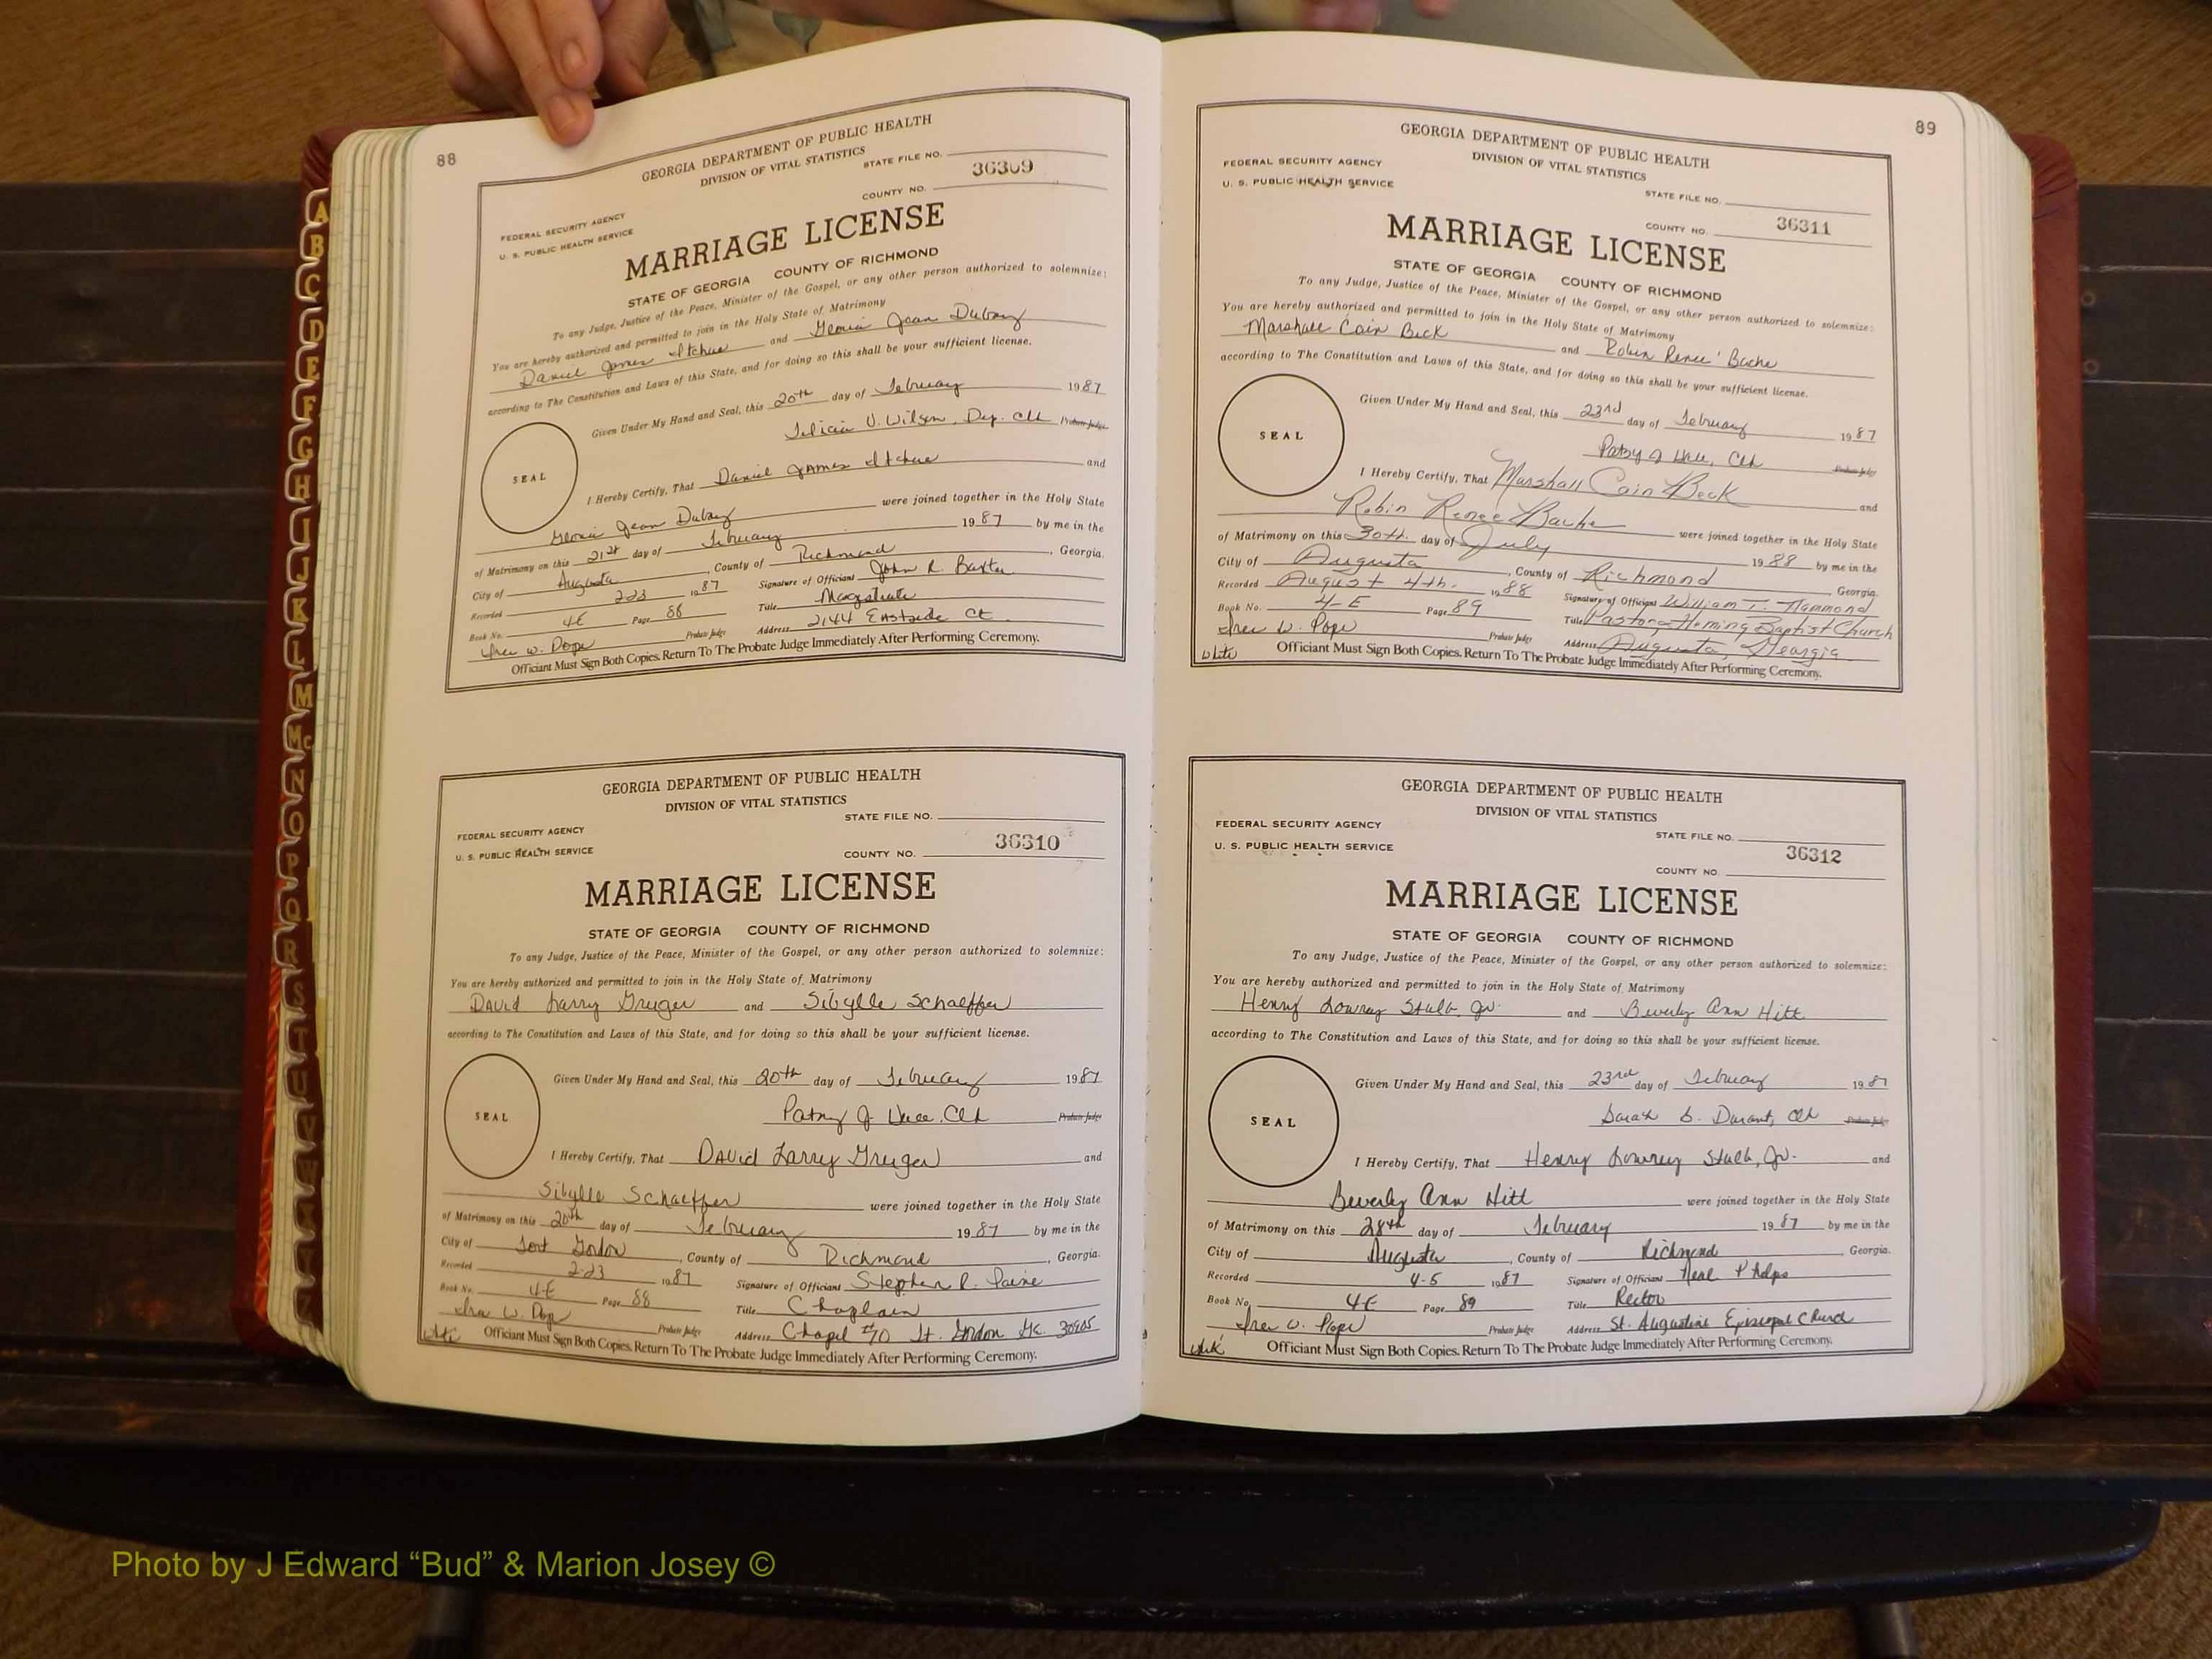 88
GEORGIA DEPARTMENT OF PUBLIC HEALTH
DIVISION OF VITAL STATISTICS
STATE FILE NO.
36309
COUNTY NO.
FEDERAL SECURITY AGENCY
U. S. PUBLIC HEALTH SERVICE
MARRIAGE LICENSE
STATE OF GEORGIA COUNTY OF RICHMOND
To any Judge, Justice of the Peace, Minister of the Gospel, or any other person authorized to solemnize:
You are hereby authorized and permitted to join in the Holy State of Matrimony
Daniel James and Jean
according to The Constitution and Laws of this State, and for doing so this shall be your sufficient license.
Given Under My Hand and Seal, this 20th day of February 1987
Felicia V. Wilson, Dep. Clk Probate Judge
SEAL
I Hereby Certify, That Daniel James and
Jean were joined together in the Holy State
of Matrimony on this 21st day of February 1987 by me in the
City of Augusta, County of Richmond, Georgia.
Recorded 2-23 1987 Signature of Officiant John R. Baxter
Book No. 4E Page 88 Title Magistrate
W. Pope Probate Judge Address 2144 Eastside Ct
Officiant Must Sign Both Copies. Return To The Probate Judge Immediately After Performing Ceremony.
GEORGIA DEPARTMENT OF PUBLIC HEALTH
DIVISION OF VITAL STATISTICS
STATE FILE NO.
FEDERAL SECURITY AGENCY
36310
U. S. PUBLIC HEALTH SERVICE
COUNTY NO.
MARRIAGE LICENSE
STATE OF GEORGIA COUNTY OF RICHMOND
To any Judge, Justice of the Peace, Minister of the Gospel, or any other person authorized to solemnize:
You are hereby authorized and permitted to join in the Holy State of Matrimony
David Larry Gruger and Sibylle Schaeffer
according to The Constitution and Laws of this State, and for doing so this shall be your sufficient license.
Given Under My Hand and Seal, this 20th day of February 1987
Patsy J. Clk Probate Judge
SEAL
I Hereby Certify, That David Larry Gruger and
Sibylle Schaeffer were joined together in the Holy State
of Matrimony on this 20th day of February 1987 by me in the
City of Fort Gordon, County of Richmond, Georgia.
Recorded 2-23 1987 Signature of Officiant Stephen R. Paine
Book No. 4-E Page 88 Title Chaplain
W. Pope Probate Judge Address Chapel #10 Ft. Gordon Ga. 30905
Officiant Must Sign Both Copies. Return To The Probate Judge Immediately After Performing Ceremony.
89
GEORGIA DEPARTMENT OF PUBLIC HEALTH
DIVISION OF VITAL STATISTICS
FEDERAL SECURITY AGENCY
U. S. PUBLIC HEALTH SERVICE
STATE FILE NO.
36311
COUNTY NO.
MARRIAGE LICENSE
STATE OF GEORGIA COUNTY OF RICHMOND
To any Judge, Justice of the Peace, Minister of the Gospel, or any other person authorized to solemnize:
You are hereby authorized and permitted to join in the Holy State of Matrimony
Marshall Cain Beck and Robin Renee' Bache
according to The Constitution and Laws of this State, and for doing so this shall be your sufficient license.
Given Under My Hand and Seal, this 23rd day of February 1987
Patsy J Clk Probate Judge
SEAL
I Hereby Certify, That Marshall Cain Beck and
Robin Renee Bache were joined together in the Holy State
of Matrimony on this 30th day of July 1988 by me in the
City of Augusta, County of Richmond Georgia.
Recorded August 4th. 1988 Signature of Officiant William T. Hammond
Book No. 4-E Page 89 Title Pastor-Fleming Baptist Church
W. Pope Probate Judge Address Augusta, Georgia
White Officiant Must Sign Both Copies. Return To The Probate Judge Immediately After Performing Ceremony.
GEORGIA DEPARTMENT OF PUBLIC HEALTH
DIVISION OF VITAL STATISTICS
FEDERAL SECURITY AGENCY
STATE FILE NO.
U. S. PUBLIC HEALTH SERVICE
36312
COUNTY NO.
MARRIAGE LICENSE
STATE OF GEORGIA COUNTY OF RICHMOND
To any Judge, Justice of the Peace, Minister of the Gospel, or any other person authorized to solemnize:
You are hereby authorized and permitted to join in the Holy State of Matrimony
Henry Lowrey Stulb, Jr. and Beverly Ann Hitt
according to The Constitution and Laws of this State, and for doing so this shall be your sufficient license.
Given Under My Hand and Seal, this 23rd day of February 1987
Sarah B. Durant, Clk Probate Judge
SEAL
I Hereby Certify, That Henry Lowrey Stulb, Jr. and
Beverly Ann Hitt were joined together in the Holy State
of Matrimony on this 28th day of February 1987 by me in the
City of Augusta, County of Richmond, Georgia.
Recorded 4-5 1987 Signature of Officiant Neal Phelps
Book No. 4E Page 89 Title Rector
W. Pope Probate Judge Address St. Augustine Episcopal Church
Officiant Must Sign Both Copies. Return To The Probate Judge Immediately After Performing Ceremony.
A
B
C
D
E
F
G
H
I
J
K
L
M
Mc
N
O
P
Q
R
S
T
U
Photo by J Edward “Bud” & Marion Josey ©